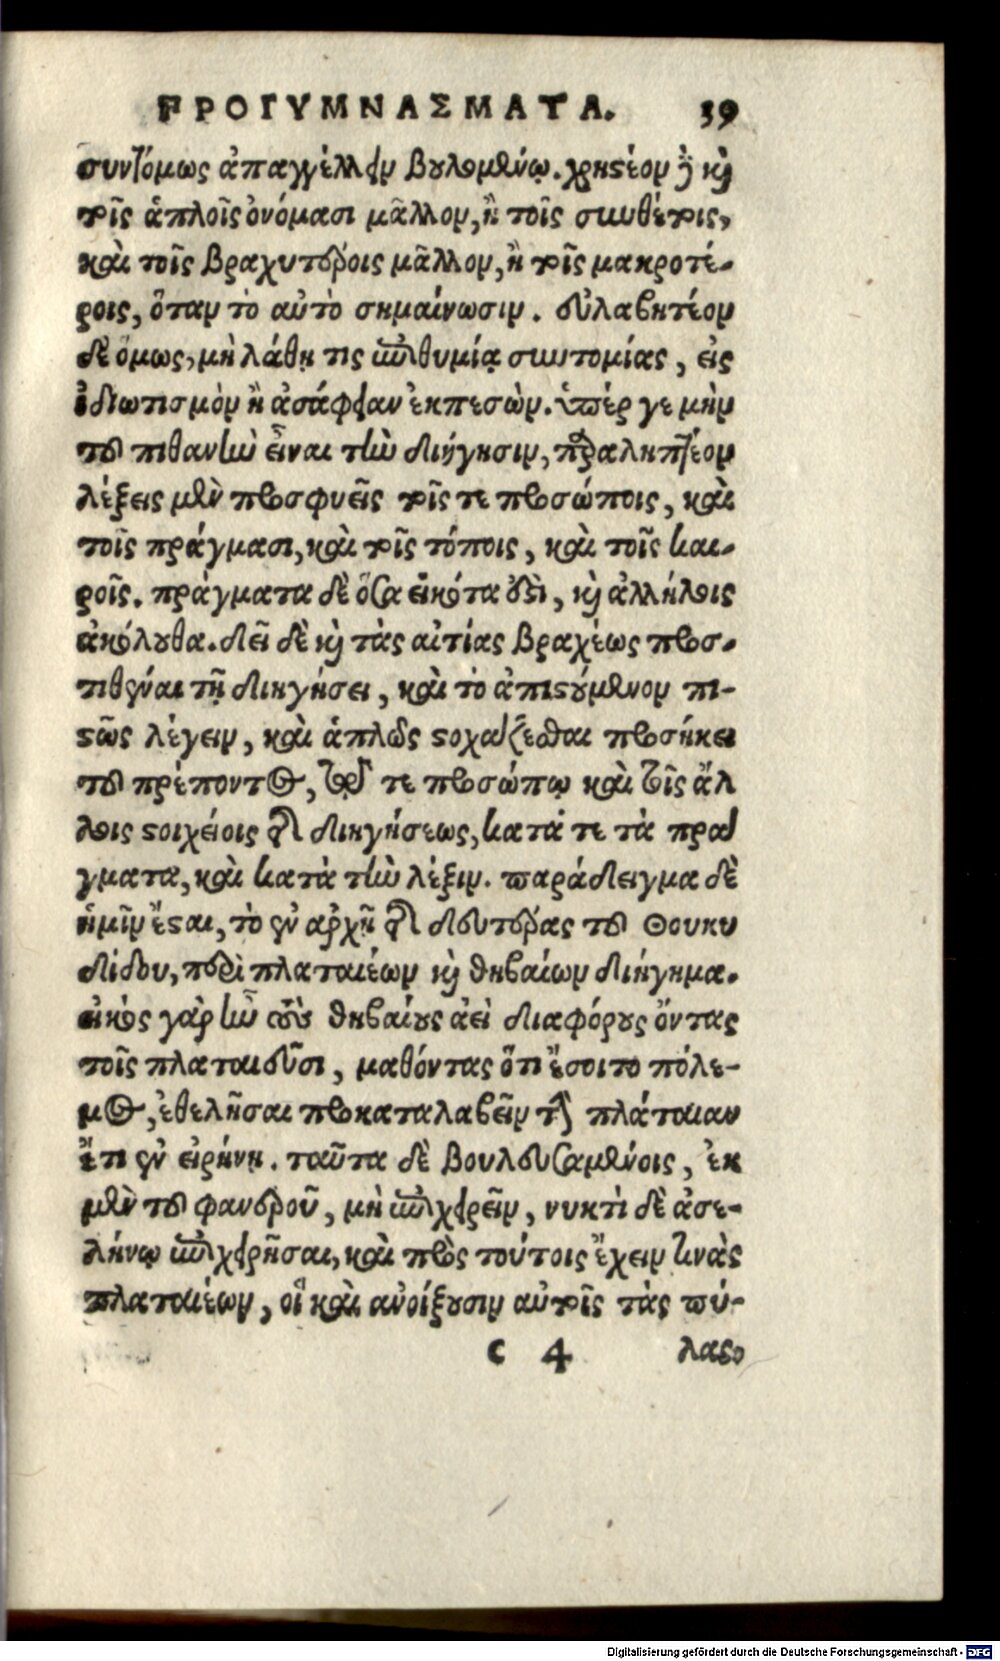 ΠΡΟΓΥΜΝΑΣΜΑΤΑ. 39
συντόμως ἀπαγγέλλειν βουλομένῳ. χρηστέον δὲ καὶ
τοῖς ἁπλοῖς ὀνόμασι μᾶλλον, ἢ τοῖς συνθέτοις,
καὶ τοῖς βραχυτέροις μᾶλλον, ἢ τοῖς μακροτέ-
ροις, ὅταν τὸ αὐτὸ σημαίνωσιν. εὐλαβητέον
δὲ ὅμως, μὴ λάθῃ τις ἐπιθυμίᾳ συντομίας, εἰς
ἰδιωτισμὸν ἢ ἀσάφειαν ἐκπεσὼν. ὑπέρ γε μὴν
τοῦ πιθανὴν εἶναι τὴν διήγησιν, παραληπτέον
λέξεις μὲν προσφυεῖς τοῖς τε προσώποις, καὶ
τοῖς πράγμασι, καὶ τοῖς τόποις, καὶ τοῖς και-
ροῖς. πράγματα δὲ ὅσα εἰκότα ἐστὶ, καὶ ἀλλήλοις
ἀκόλουθα. δεῖ δὲ καὶ τὰς αἰτίας βραχέως προσ-
τιθέναι τῇ διηγήσει, καὶ τὸ ἀπιστούμενον πι-
στῶς λέγειν, καὶ ἁπλῶς στοχάζεσθαι προσήκει
τοῦ πρέποντος, τῷ τε προσώπῳ καὶ τοῖς ἄλ
λοις στοιχείοις τῆς διηγήσεως, κατά τε τὰ πρά
γματα, καὶ κατὰ τὴν λέξιν. παράδειγμα δὲ
ἡμῖν ἔσται, τὸ ἐν ἀρχῇ τῆς δευτέρας τοῦ Θουκυ
δίδου, περὶ πλαταιέων καὶ θηβαίων διήγημα.
εἰκὸς γὰρ ἦν τοὺς θηβαίους ἀεὶ διαφόρους ὄντας
τοῖς πλαταιεῦσι, μαθόντας ὅτι ἔσοιτο πόλε-
μος, ἐθελῆσαι προκαταλαβεῖν τὴν πλάταιαν
ἔτι ἐν εἰρήνῃ. ταῦτα δὲ βουλευσαμένοις, ἐκ
μὲν τοῦ φανεροῦ, μὴ ἐπιχειρεῖν, νυκτὶ δὲ ἀσε-
λήνῳ ἐπιχειρῆσαι, καὶ πρὸς τούτοις ἔχειν τινὰς
πλαταιέων, οἳ καὶ ἀνοίξουσιν αὐτοῖς τὰς πύ-
C 4 λας